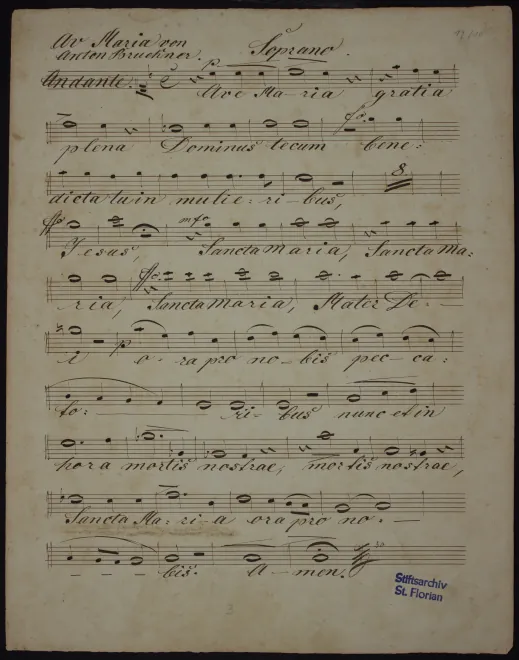 Av Maria von
Anton Bruckner.
Soprano.
Andante.
p.
Ave Ma-ria gratia
plena Dominus tecum bene:
dicta tu in mulie-ri-bus,
8.
Jesus, Sancta Maria, Sancta Ma:
ria, Sancta Maria, Mater De-
i o-ra pro no-bis pec-ca:
to: - - ri-bus nunc et in
hora mortis nostrae, mortis nostrae,
Sancta Ma:ri-a ora pro no:-
- - - - bis. A-men.
Stiftsarchiv
St. Florian
3